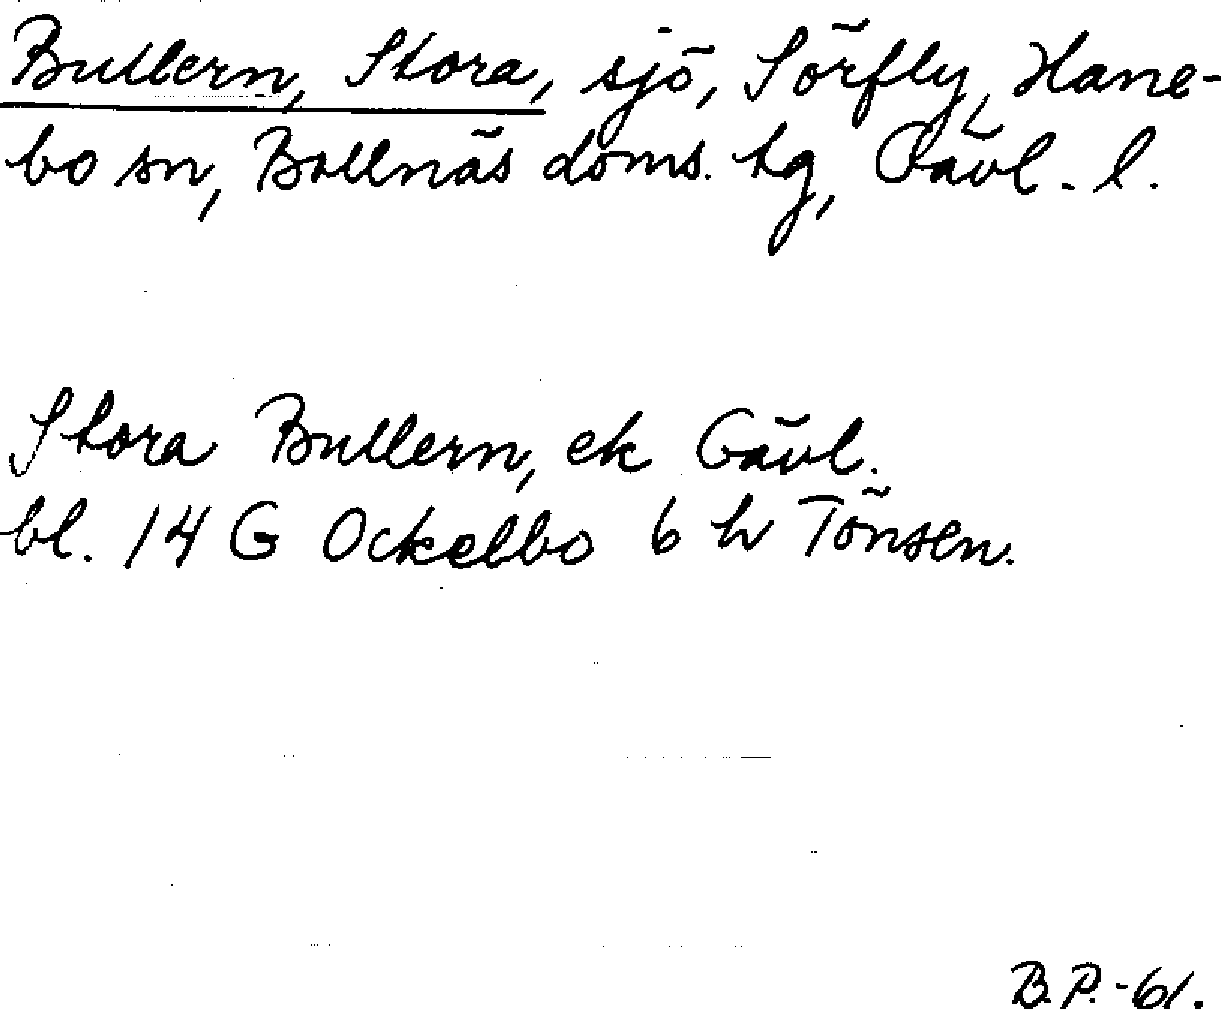 Bullern, Stora, sjö, Sörfly, Hane-
bo sn, Bollnäs doms. tg, Gävl. l.
Stora Bullern, ek Gävl.
bl. 14 G Ockelbo 6 h Tönsen.
B.P.-61.